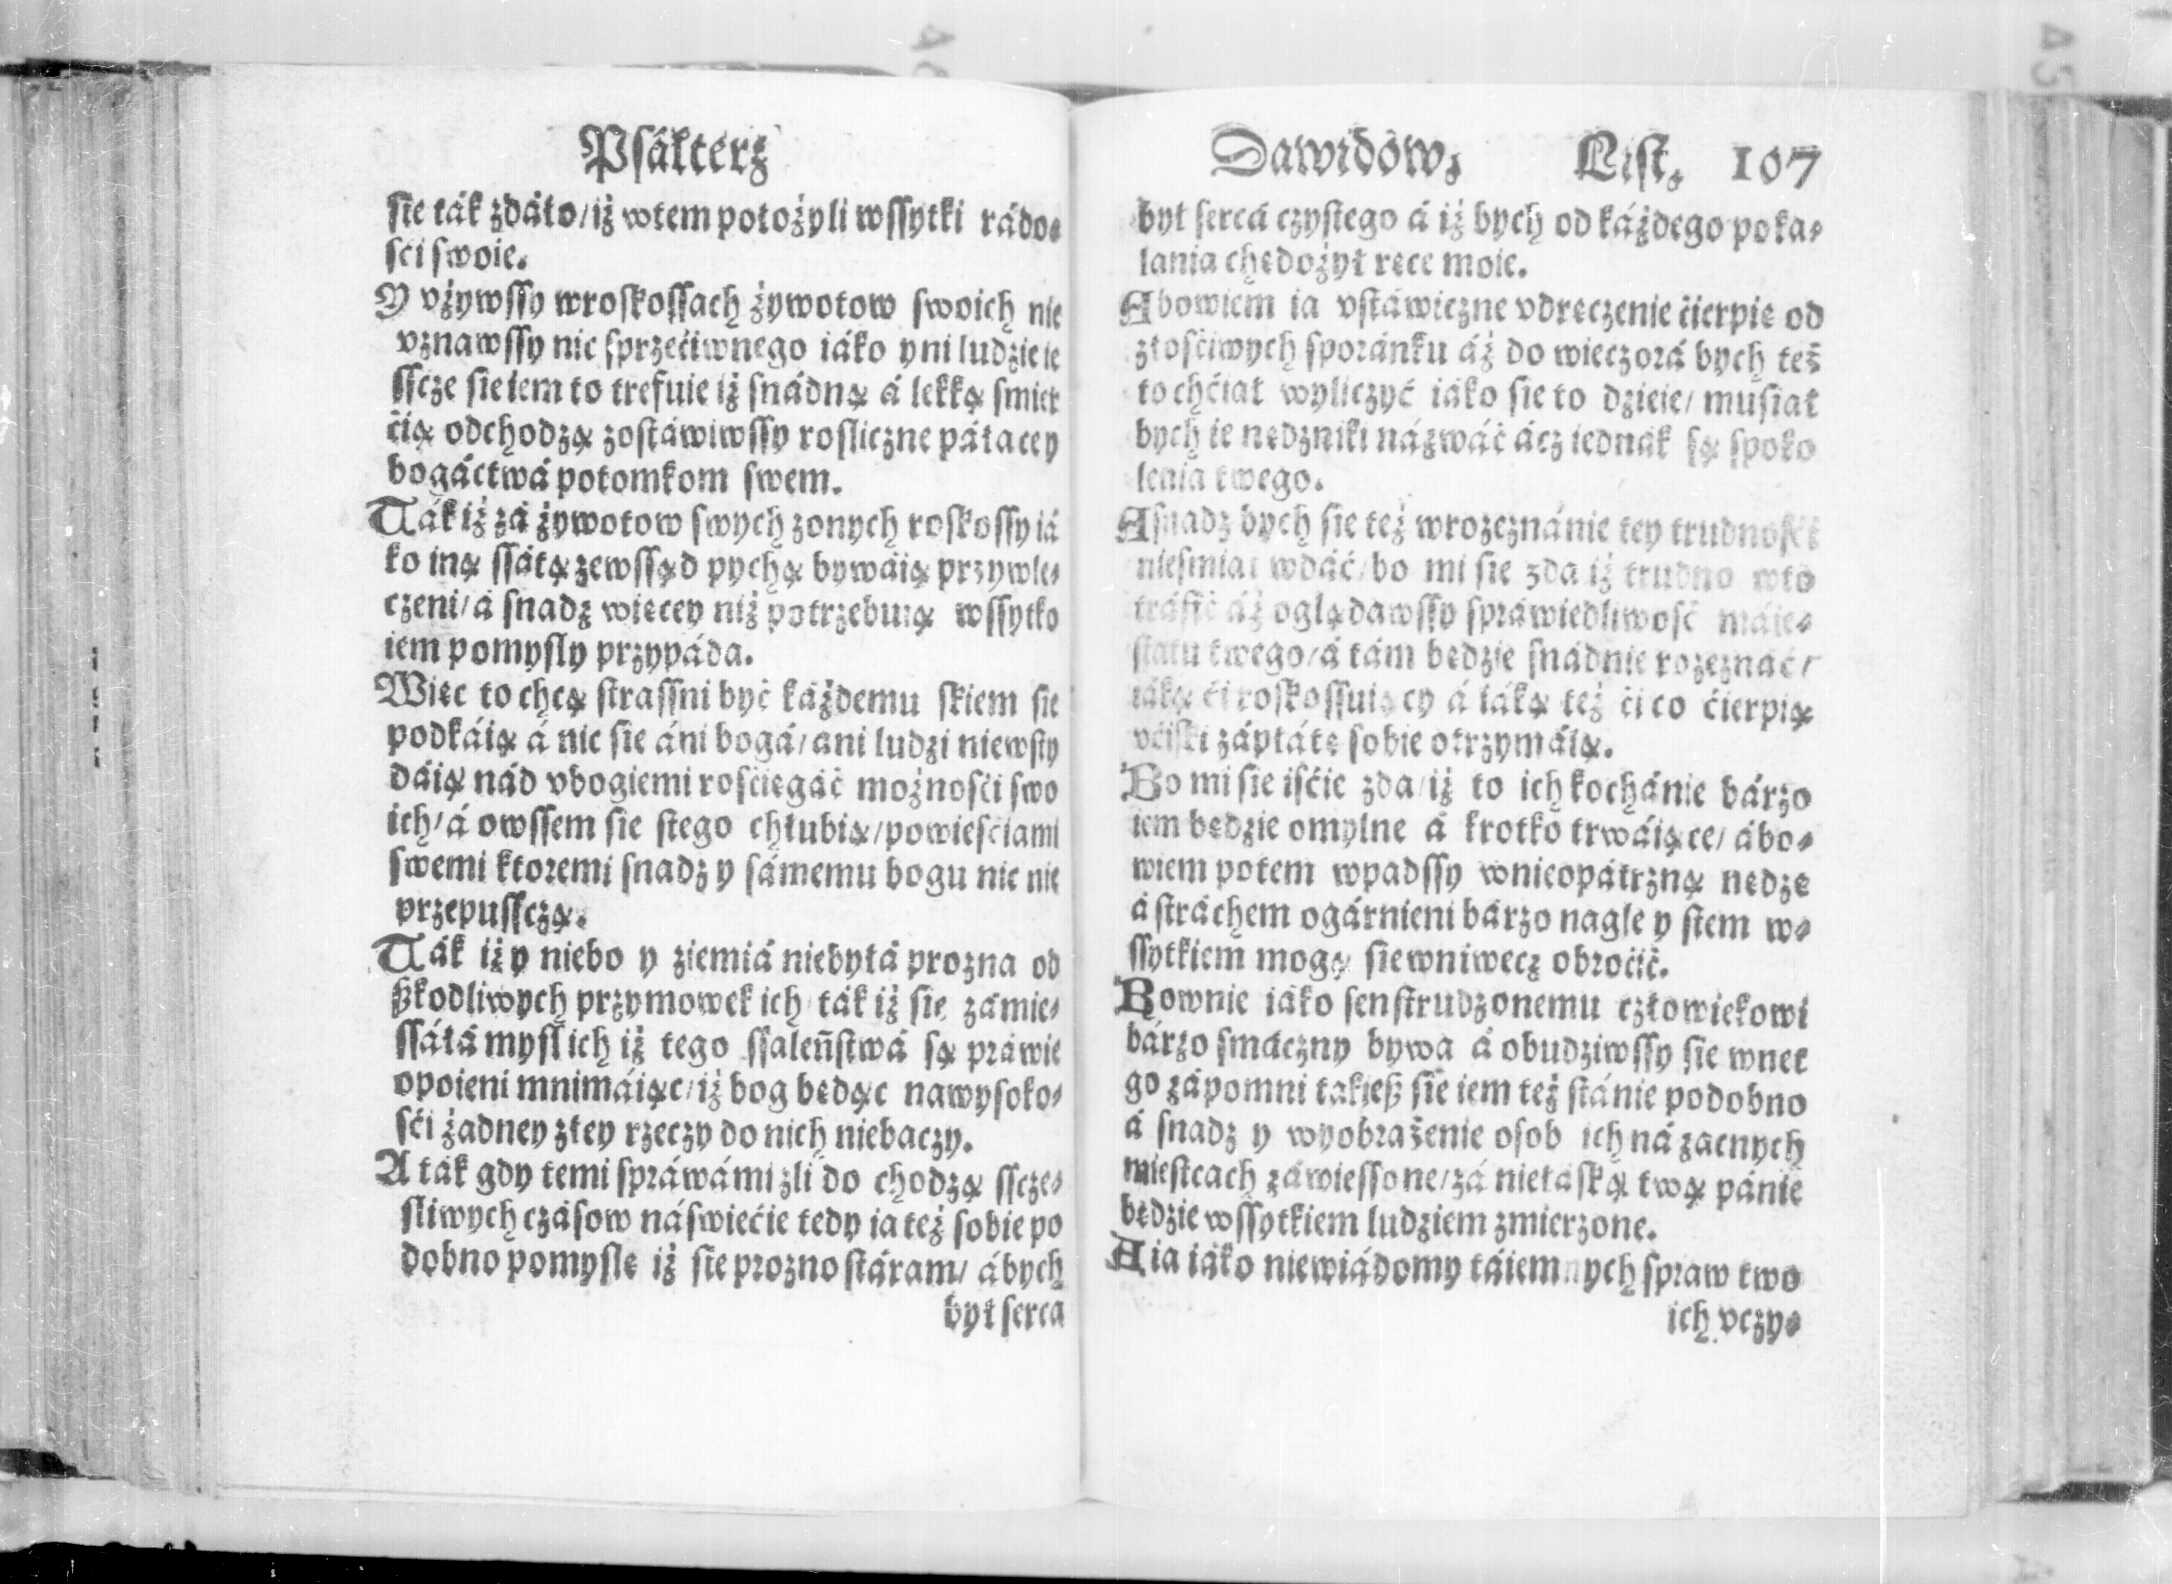 Psałterz
sie ták zdáło/iż wtem położyli wssytki rádo⸗
sci swoie.
Y vżywssy wroskossach żywotow swoich nie
vznawssy nic sprzećiwnego iáko yni ludzie ie
ssczе sie iem to trefuie iż snádną á lekką smier
ćią odchodzą zostáwiwssy rosliczne páłacey
bogáctwá potomkom swem.
Ták iż zá żywotow swych zonych roskossy iá
ko iną ssátą zewssąd pychą bywáią przywle⸗
czeni/á snadz więcey niż potrzebuią wssytko
iem pomysly przypáda.
Więc to chcą strassni być káżdemu skiem sie
podkáią á nic sie áni bogá/ani ludzi niewsty
dáią nád vbogiemi rosćiegáć możnosći swo
ich/á owssem sie stego chłubią/powiesciami
swemi ktoremi snadz y sámemu bogu nic nie
przepussczą.
Ták iż y niebo y ziemiá niebyłá prozna od
ßkodliwych przymowek ich ták iż sie zámie⸗
ssáłá mysl ich iż tego ssaleństwá są práwie
opoieni mnimáiąc/iż bog będąc nawysoko⸗
sći żadney złey rzeczy do nich niebaczy.
A ták gdy temi spráwámi zli do chodzą ssczе⸗
sliwych czásow náświećie tedy ia też sobie po
dobno pomyslę iż sie prozno stáram/ ábych
był serca
Dawidow, List, 107
był sercá czystego á iż bych od káżdego poka⸗
lania chędożył ręce moie.
Abowiem ia vstáwiczne vdręczenie ćierpię od
złosćiwych sporánku áż do wieczorá bych też
to chćiał wyliczyć iáko sie to dzieie/ musiał
bych ie nędzniki názwáć ácz iednák są spoko
lenia twego.
Asnadz bych sie też wrozeznánie tey trudnosći
niesmiał wdáć/bo mi sie zda iż trudno wto
tráfić áż oglądawssy spráwiedliwość máie⸗
statu twego/á tám będzie snádnie rozeznáć/
iáką ći roskossuiący á iáką też ći co ćierpią
vćiski zápłátę sobie otrzymáią.
Bo mi sie iśćie zda/iż to ich kochánie bárzo
iem będzie omylne á krotko trwáiące/ ábo⸗
wiem potem wpadssy wnieopátrzną nędzę
á stráchem ogárnieni bárzo nagle y stem w⸗
ssytkiem mogą sie wniwecz obroćić.
Rownie iáko sen strudzonemu człowiekowi
bárzo smáczny bywa á obudziwssy sie wnet
go zápomni takieß sie iem też stánie podobno
á snadz y wyobrażenie osob ich ná zacnych
miestcach záwiessone/zá niełáską twą pánie
będzie wssytkiem ludziem zmierzone.
A ia iáko niewiádomy táiemnych spraw two
ich vczy⸗